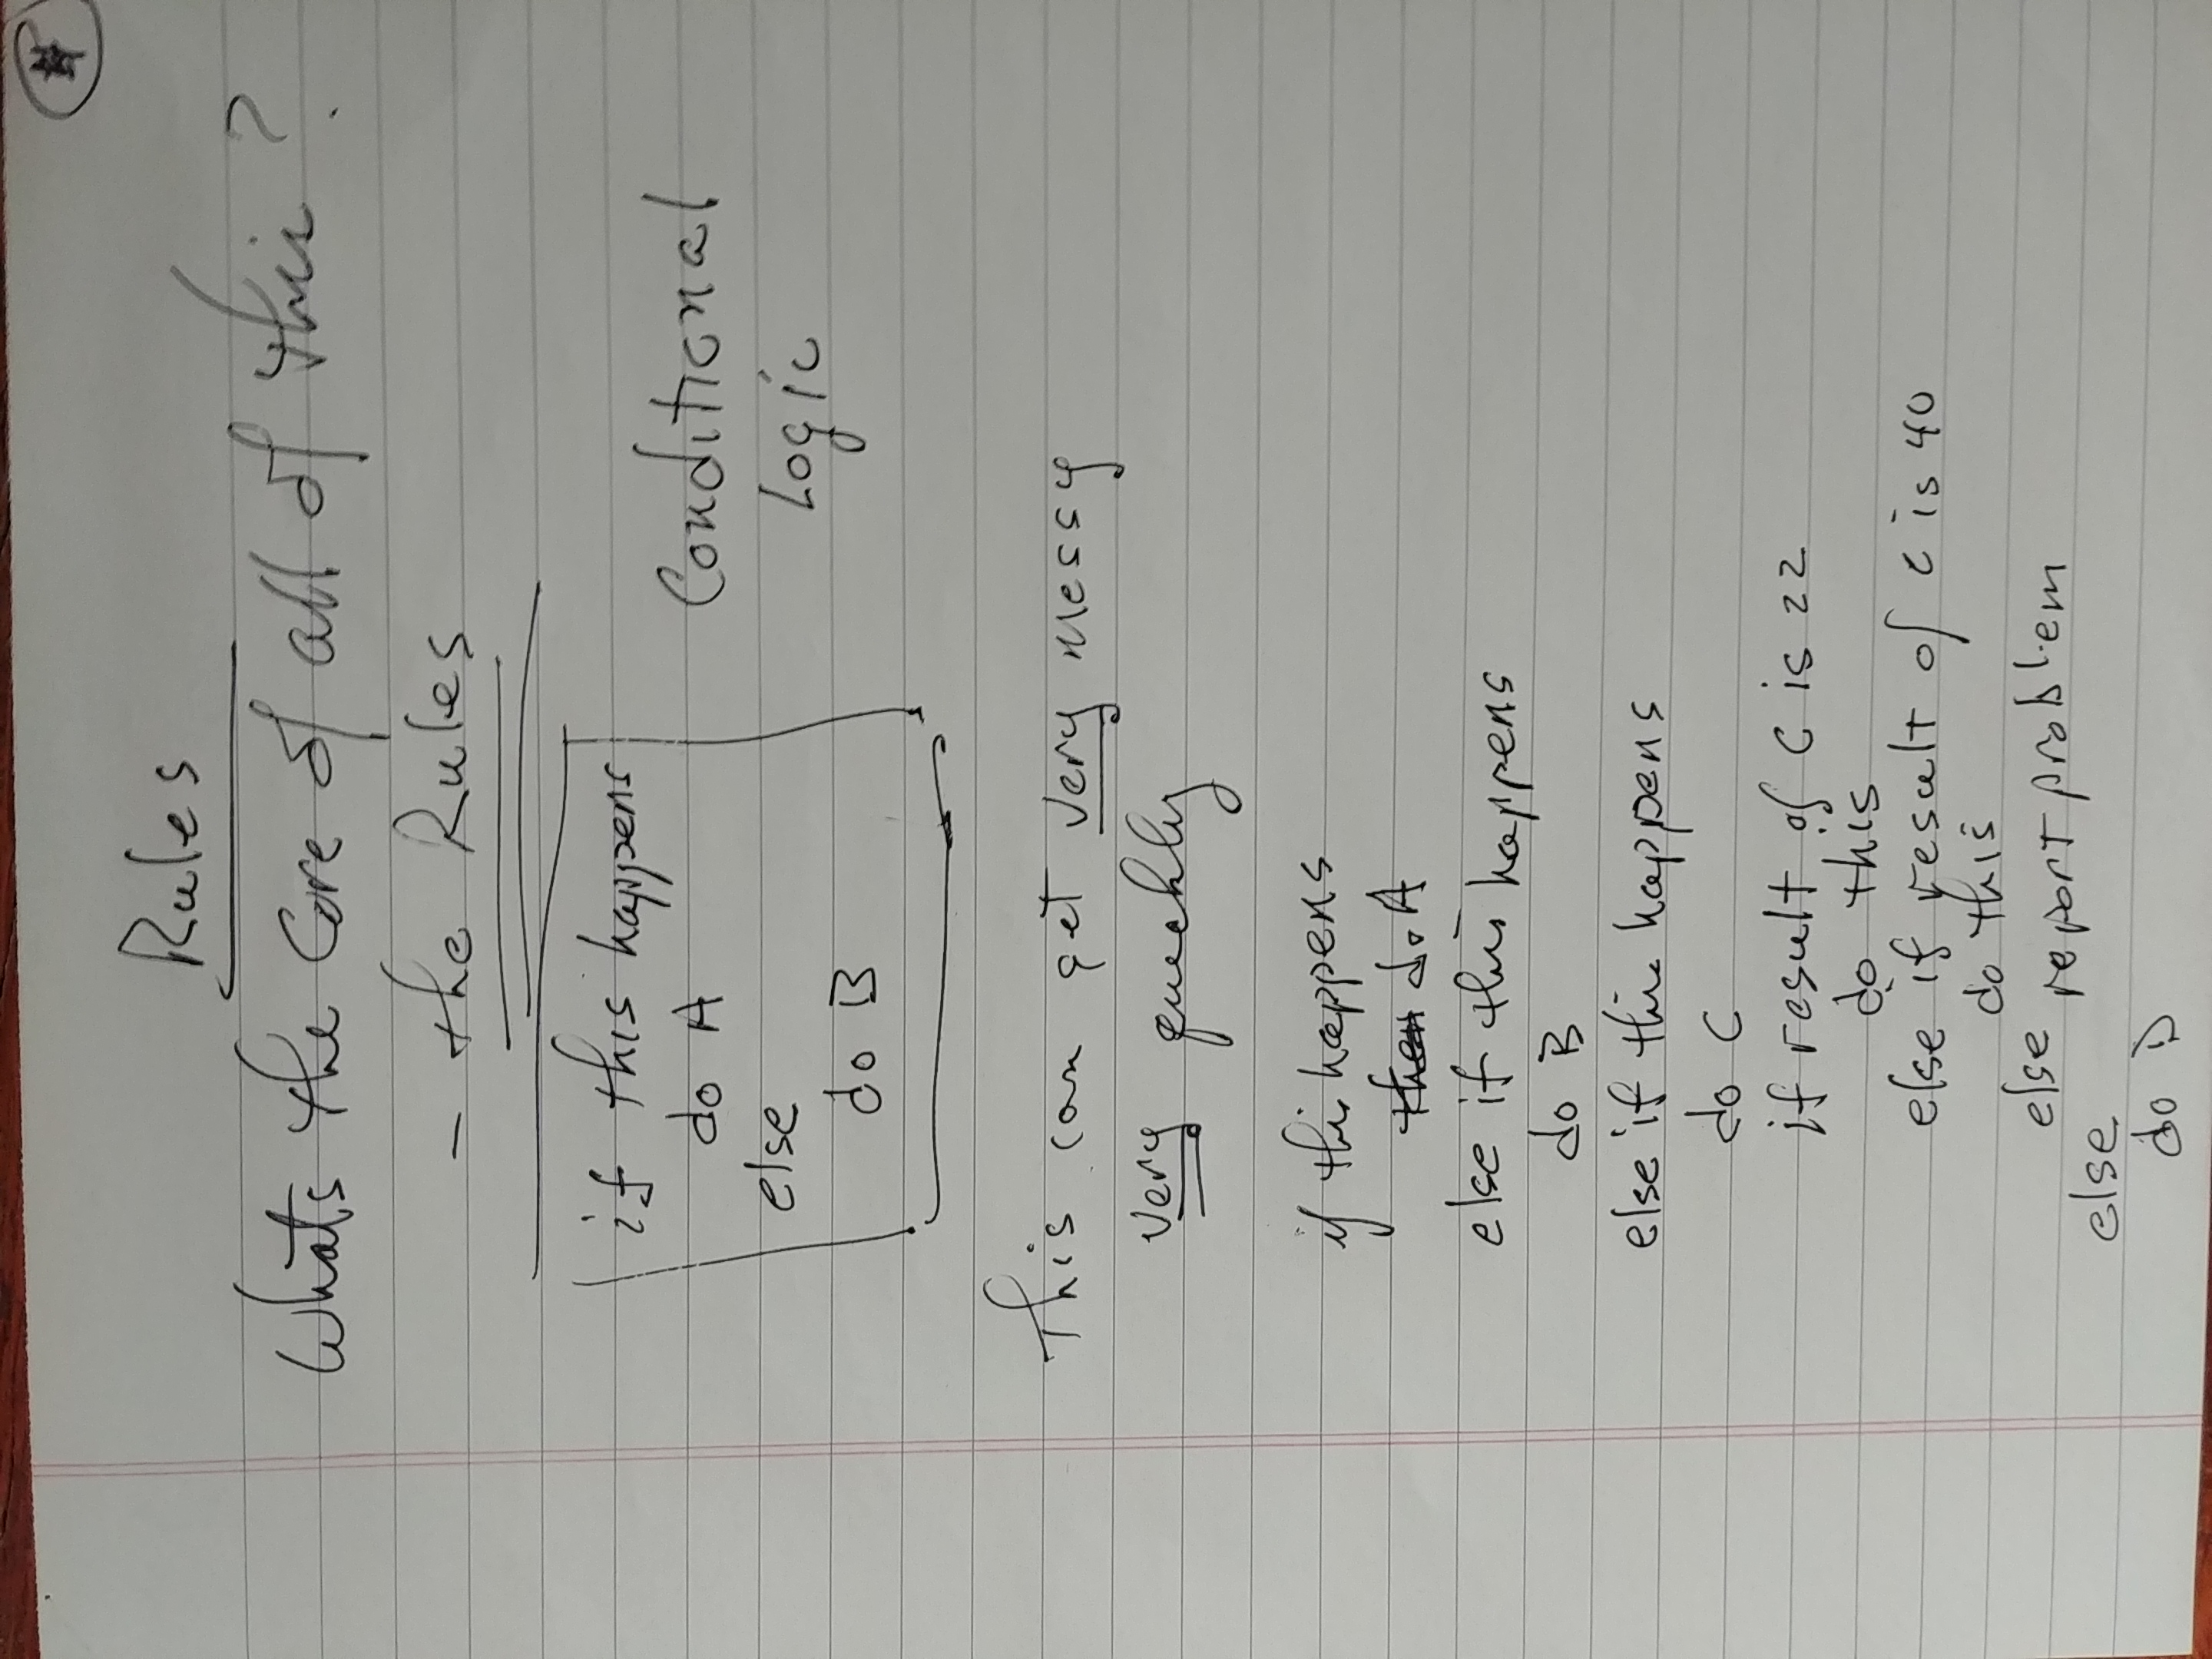 Rules
Whats the Core of all of this?
- the Rules
if this happens
do A
else
do B
Conditional
Logic
This can get very messy
very quickly
if this happens
then do A
else if this happens
do B
else if this happens
do C
if result of C is 22
do this
else if result of c is 40
do this
else report problem
else
do D